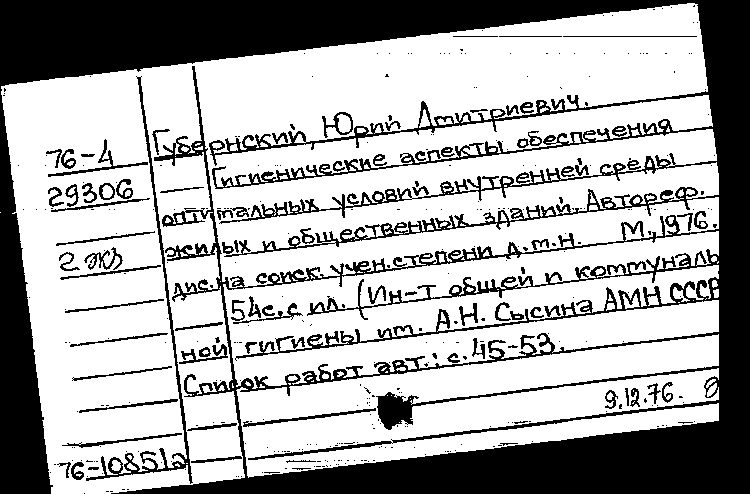 76-4 Губернский, Юрий Дмитриевич.
29306 Гигиенические аспекты обеспечения
оптимальных условий внутренней среды
2 экз жилых и общественных зданий. Автореф.
дис. на соиск. учен. степени д.м.н. М., 1976.
54 с. с ил. (Ин-т общей и коммуналь
ной гигиены им. А.Н. Сысина АМН СССР
Список работ авт.: с. 45-53.
9.12.76.
76-10851а